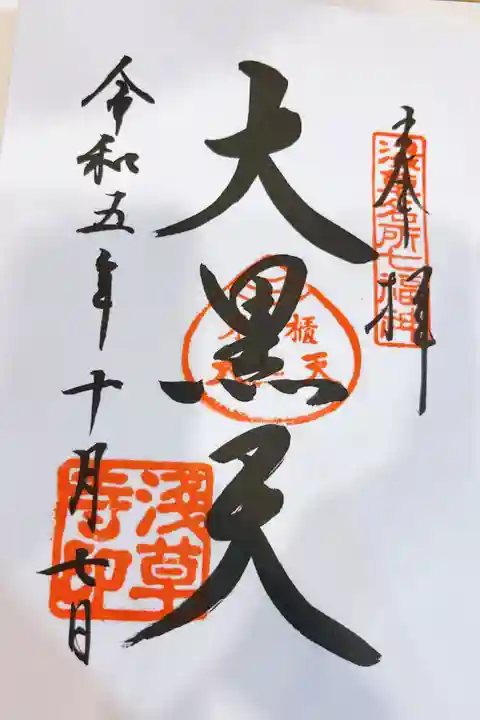 奉拝
浅草名所七福神
大黒天
令和五年十月七日
浅草
寺印